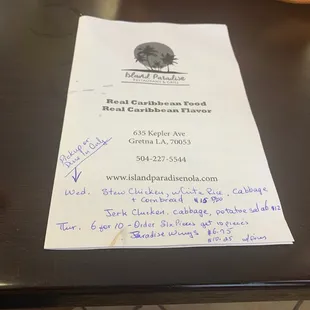 Island Paradise
Real Caribbean Food
Real Caribbean Flavor
635 Kepler Ave
Gretna LA, 70053
504-227-5544
www.islandparadisenola.com
Pickup or
Dine In Only
Wed. Stew Chicken, white Rice, cabbage
+ cornbread $15.00
Jerk Chicken, cabbage, potato salad $12
Thur. 6 for 10 - Order Six Pieces get 10 pieces
Paradise Wings $6.75
$10.25